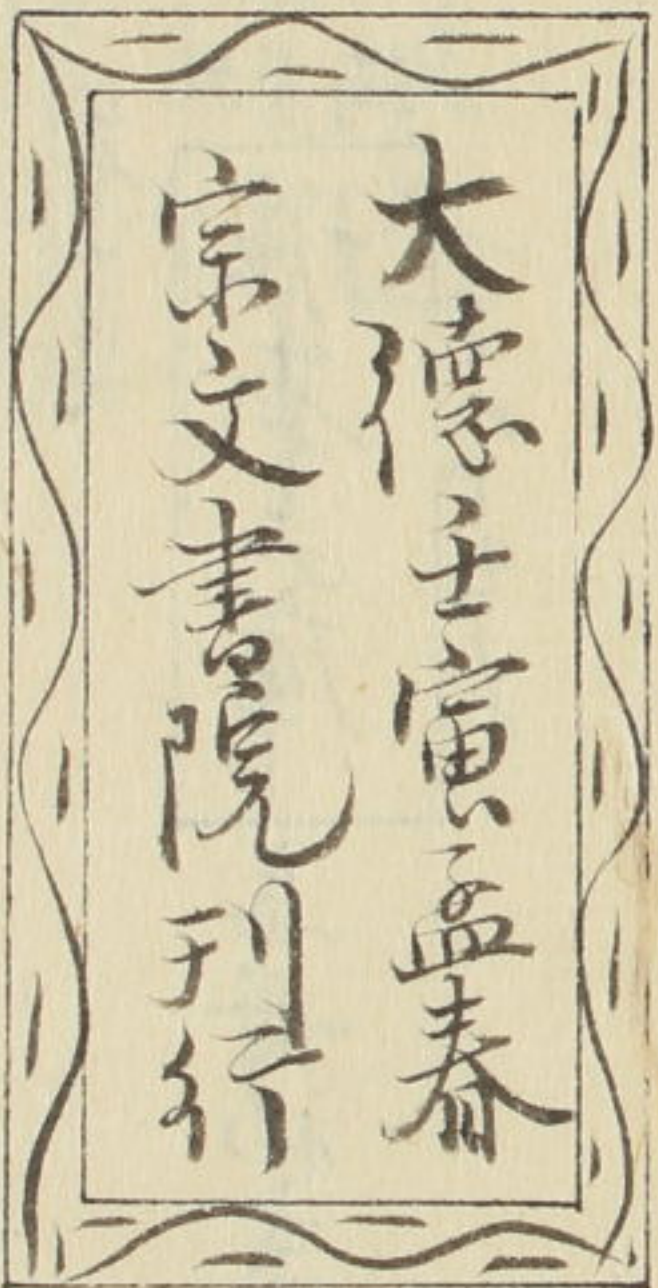 大德壬寅孟春
宗文書院刊行